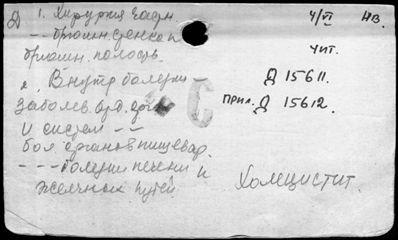 Д 1. Хирургия задн. 4/VI НВ.
— брюшн. стенка и
брюшн. полость. чит.
2. Внутр болезни — Д 15611.
Заболев. отд. орган прил. Д 15612.
и систем — —
бол органов пищевар.
— — — болезни печени и
желчных путей Холецистит.